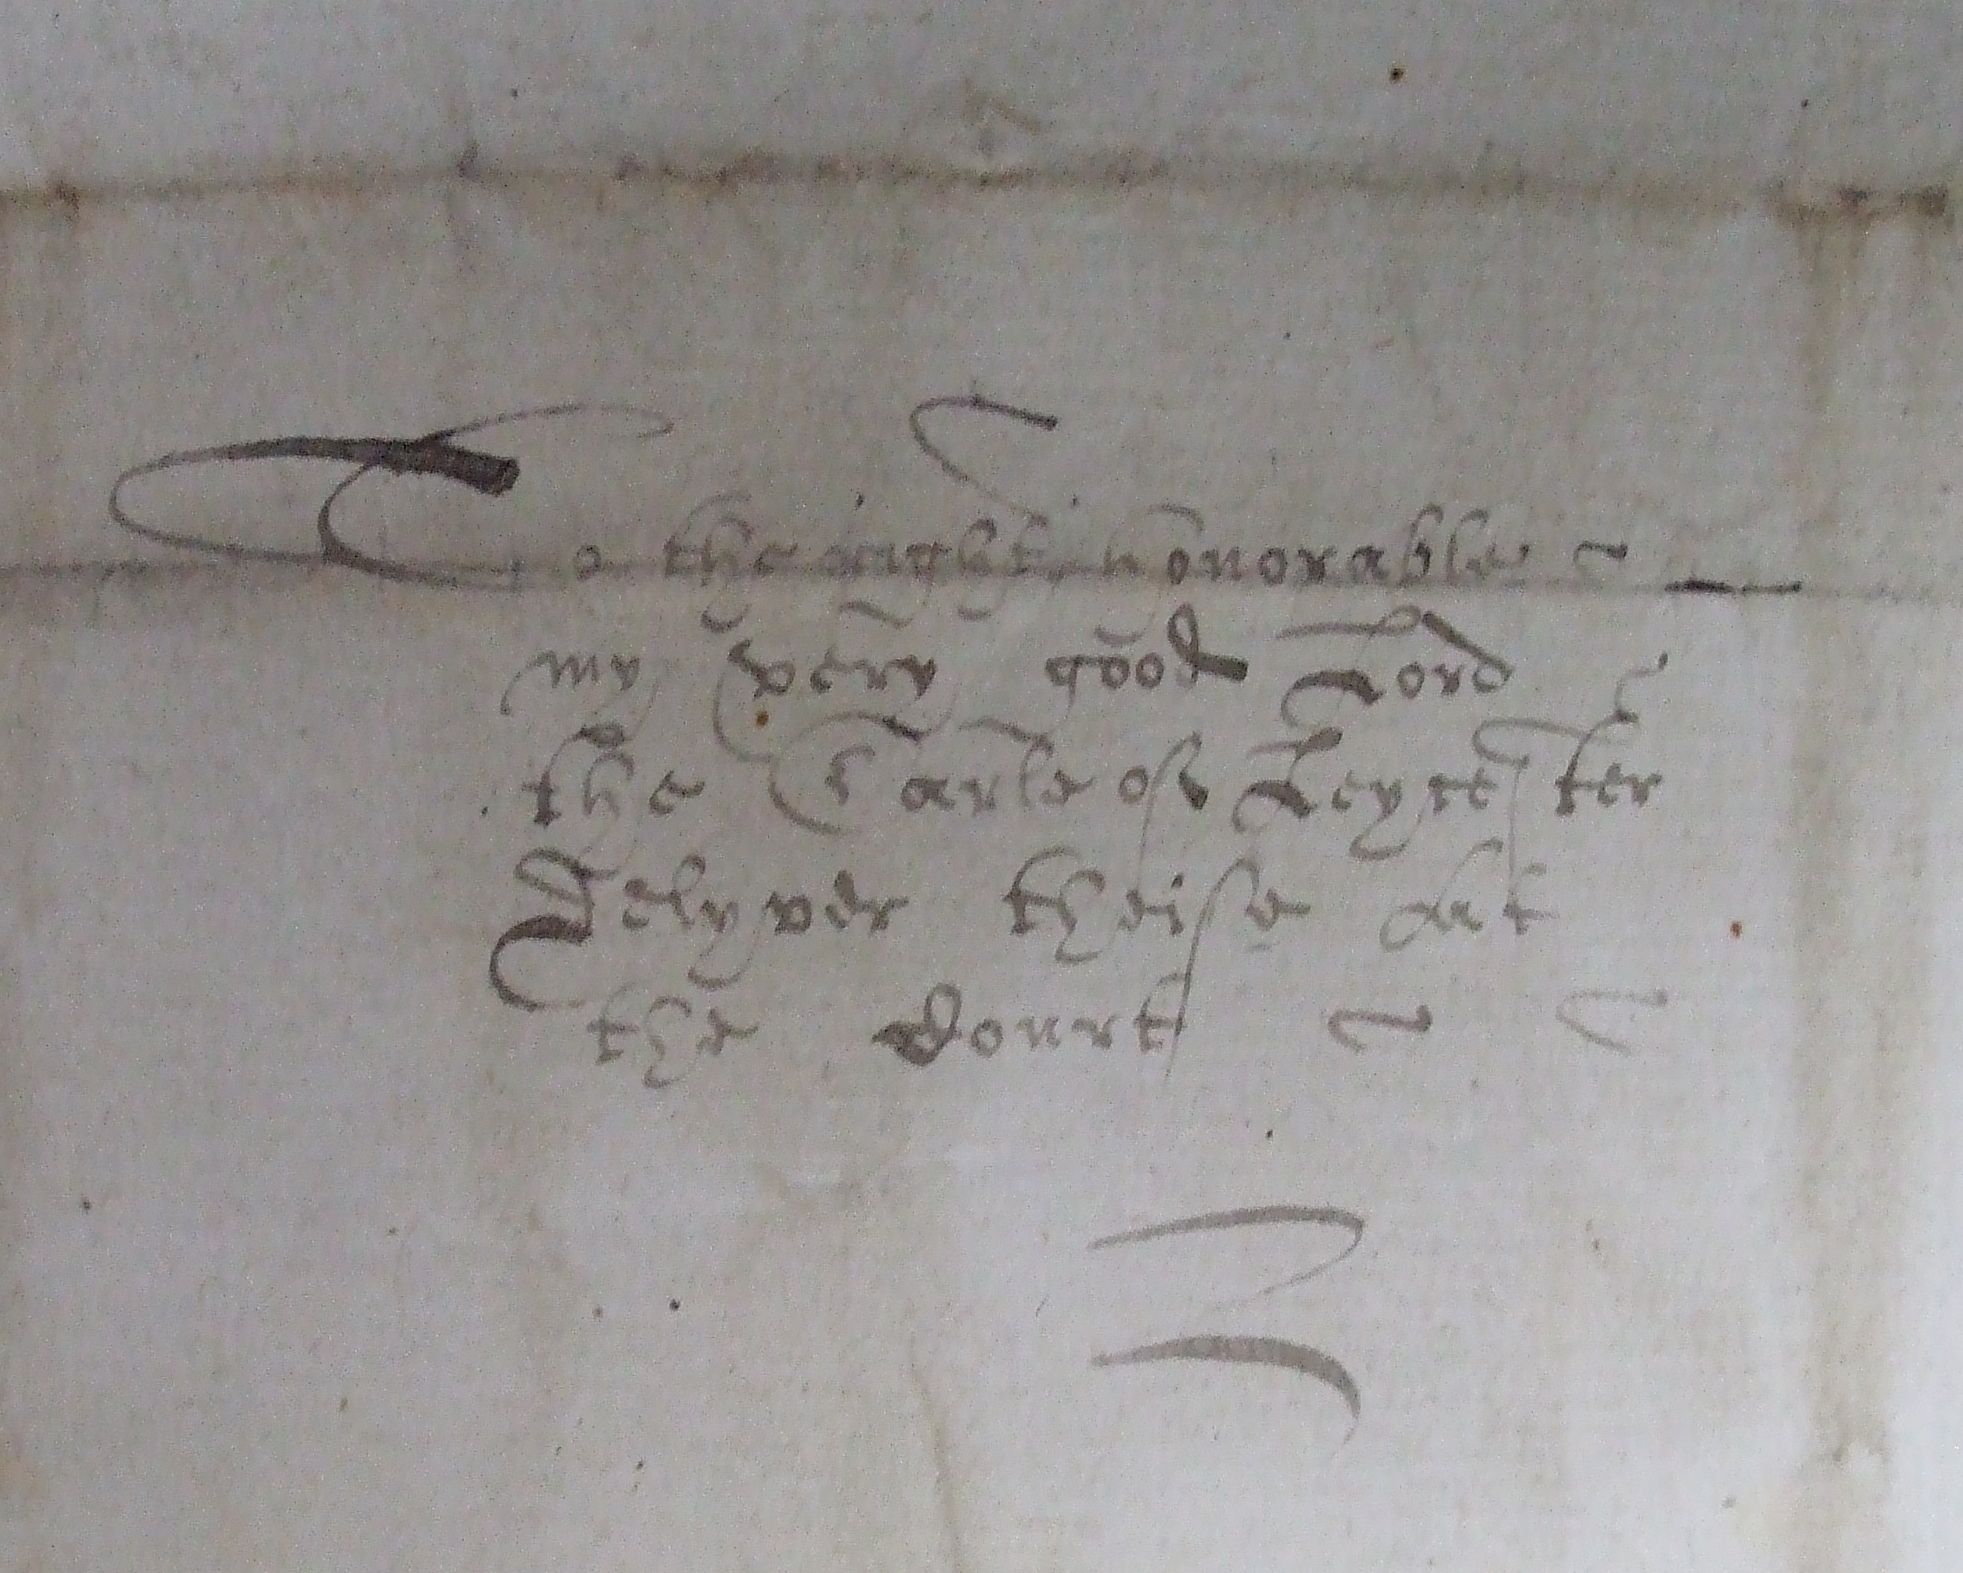 To the right honorable
my very good Lord
the Earle of Leycester
Delyver theise at
the Court